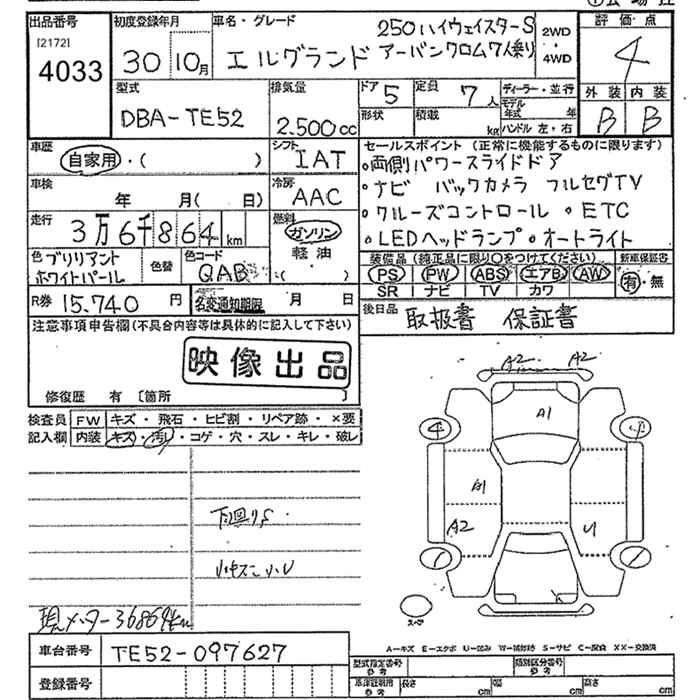 出品番号 初度登録年月 車名・グレード 評価点
[2172]
4033 30 10月 エルグランド 250ハイウェイスターS アーバンクロム7人乗り 2WD・4WD 4
型式 排気量 ドア 5 定員 7人 ディーラー・並行 外装 内装
DBA-TE52 2.500cc 形状 積載 kg モデル年式 年 B B
ハンドル 左・右
車歴 シフト セールスポイント(正常に機能するものに限ります)
自家用・( ) IAT ・両側パワースライドドア
車検 冷房 ・ナビ バックカメラ フルセグTV
年 月( 日) AAC ・クルーズコントロール ・ETC
走行 3万6千864km 燃料 ガソリン 軽油 ( ) ・LEDヘッドランプ ・オートライト
色 ブリリアントホワイトパール 色替 色コード QAB 装備品(純正品に限り○をつけてください) 新車保証書
PS PW ABS エアB AW 有・無
SR ナビ TV カワ
R券 15.740円 名変通知期限 月 日 後日品 取扱書 保証書
注意事項申告欄(不具合内容等は具体的に記入して下さい)
映像出品
修復歴 有 〔箇所 〕
検査員記入欄 FW キズ・飛石・ヒビ割・リペア跡・×要
内装 キズ・汚・コゲ・穴・スレ・キレ・破レ
A2 A2
A1
4 4
A1
A2 U
下回りS
現メーター36864km
スペア
A=キズ E=エクボ U=凹み W=補修跡 S=サビ C=腐食 XX=交換済
車台番号 TE52-097627
登録番号
型式指定番号 参考 類別区分番号 参考
車庫証明用 参考 長さ cm 幅 cm 高さ cm